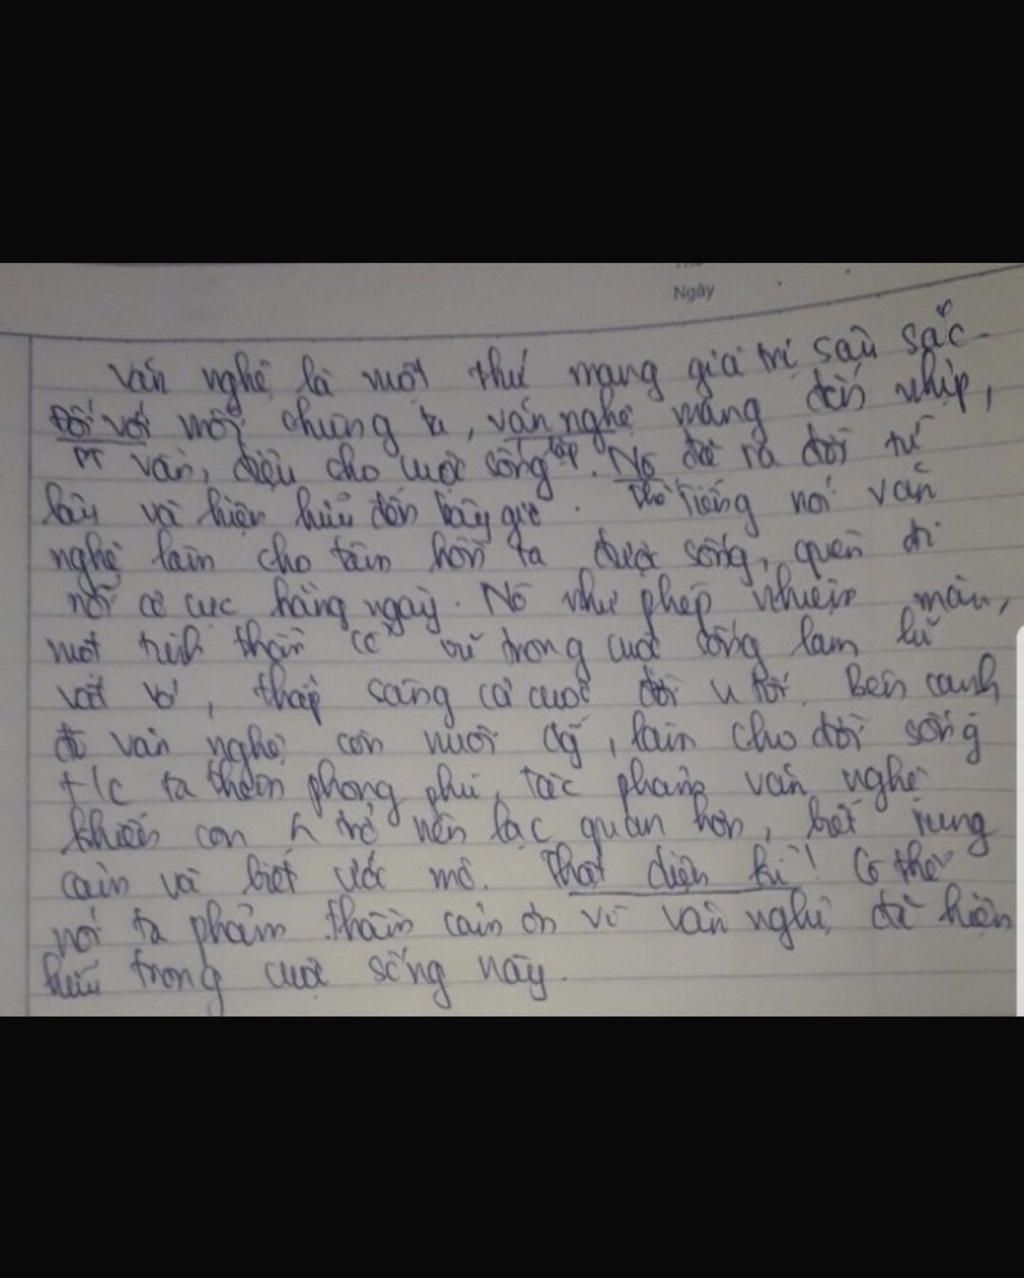 Ngày
Văn nghệ là một thứ mang giá trị sâu sắc.
Đối với mỗi chúng ta, văn nghệ mang đến nhịp,
PT vần, điệu cho cuộc sống. Nó đã ra đời từ
lâu và hiện hữu đến bây giờ. Tiếng nói văn
nghệ làm cho tâm hồn ta được sống, quên đi
nỗi cơ cực hằng ngày. Nó như phép nhiệm màu,
một tinh thần cổ vũ trong cuộc sống lam lũ
vất vả, thắp sáng cả cuộc đời u tối. Bên cạnh
đó văn nghệ còn nuôi, làm cho đời sống
t/c ta thêm phong phú, tác phẩm văn nghệ
khiến con trở nên lạc quan hơn, biết rung
cảm và biết ước mơ. Thật diệu kì! Có thể
nói ta phải thầm cảm ơn vì văn nghệ đã hiện
hữu trong cuộc sống này.